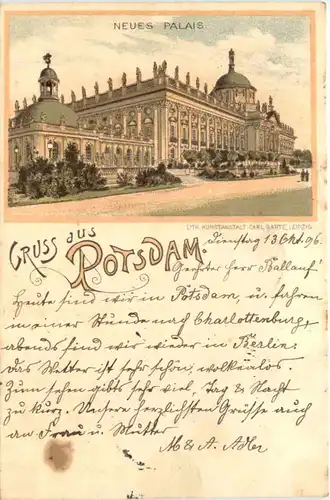 NEUES PALAIS.
LITH. KUNSTANSTALT CARL GARTE, LEIPZIG.
GRUSS aus POTSDAM.
Dienstag 13 Okt. 96.
Geehrter Herr Ballauf!
Heute sind wir in Potsdam u. fahren
in einer Stunde nach Charlottenburg,
abends sind wir wieder in Berlin.
Das Wetter ist sehr schön, wolkenlos.
Zum sehen gibts sehr viel, Tag & Nacht
zu kurz. Unsere herzlichsten Grüsse auch
an Frau u. Mutter
M & A. Adler